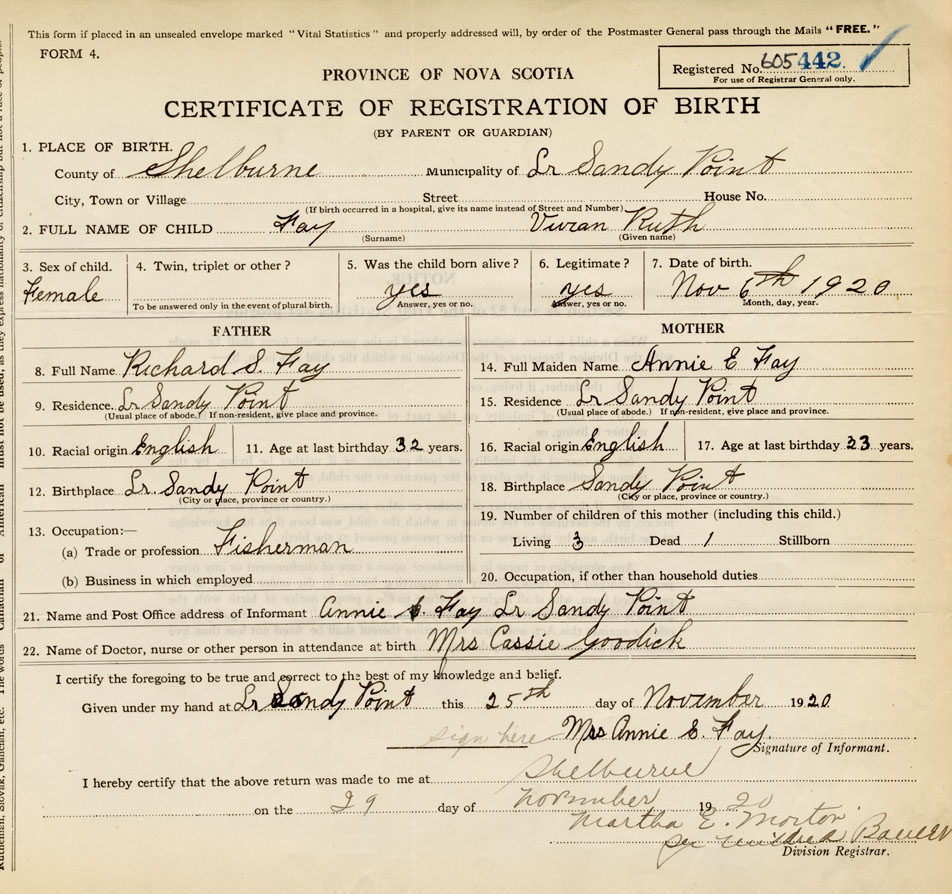 This form if placed in an unsealed envelope marked "Vital Statistics" and properly addressed will, by order of the Postmaster General pass through the Mails "FREE."
FORM 4.
Registered No. 605442.
For use of Registrar General only.
PROVINCE OF NOVA SCOTIA
CERTIFICATE OF REGISTRATION OF BIRTH
(BY PARENT OR GUARDIAN)
1. PLACE OF BIRTH.
County of Shelburne Municipality of Lr Sandy Point
City, Town or Village Street House No.
(If birth occurred in a hospital, give its name instead of Street and Number)
2. FULL NAME OF CHILD Fay Vivian Ruth
(Surname) (Given name)
3. Sex of child. 4. Twin, triplet or other? 5. Was the child born alive? 6. Legitimate? 7. Date of birth.
Female yes yes Nov 6th 1920
To be answered only in the event of plural birth. Answer, yes or no. Answer, yes or no. Month, day, year.
FATHER MOTHER
8. Full Name Richard S. Fay 14. Full Maiden Name Annie E Fay
9. Residence. Lr Sandy Point 15. Residence Lr Sandy Point
(Usual place of abode.) If non-resident, give place and province. (Usual place of abode.) If non-resident, give place and province.
10. Racial origin English 11. Age at last birthday 32 years. 16. Racial origin English 17. Age at last birthday 23 years.
12. Birthplace Lr Sandy Point 18. Birthplace Sandy Point
(City or place, province or country.) (City or place, province or country.)
13. Occupation:— 19. Number of children of this mother (including this child.)
(a) Trade or profession Fisherman Living 3 Dead 1 Stillborn
(b) Business in which employed 20. Occupation, if other than household duties
21. Name and Post Office address of Informant Annie Fay Lr Sandy Point
22. Name of Doctor, nurse or other person in attendance at birth Mrs Cassie Goodick
I certify the foregoing to be true and correct to the best of my knowledge and belief.
Given under my hand at Lr Sandy Point this 25th day of November 1920
sign here Mrs Annie E. Fay.
Signature of Informant.
I hereby certify that the above return was made to me at Shelburne
on the 29 day of November 1920
Martha E. Morton
per Mildred Bower
Division Registrar.